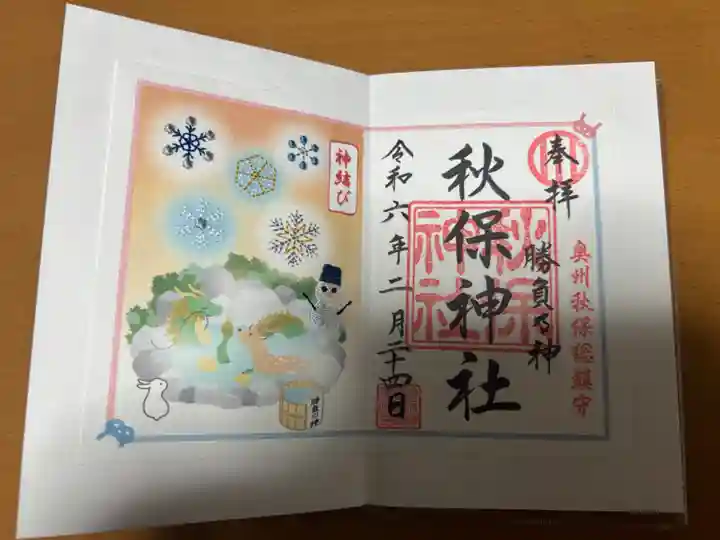 奉拝
奥州秋保総鎮守
勝負の神
秋保神社
秋保
神社
令和六年二月二十四日
神結び
勝負の神